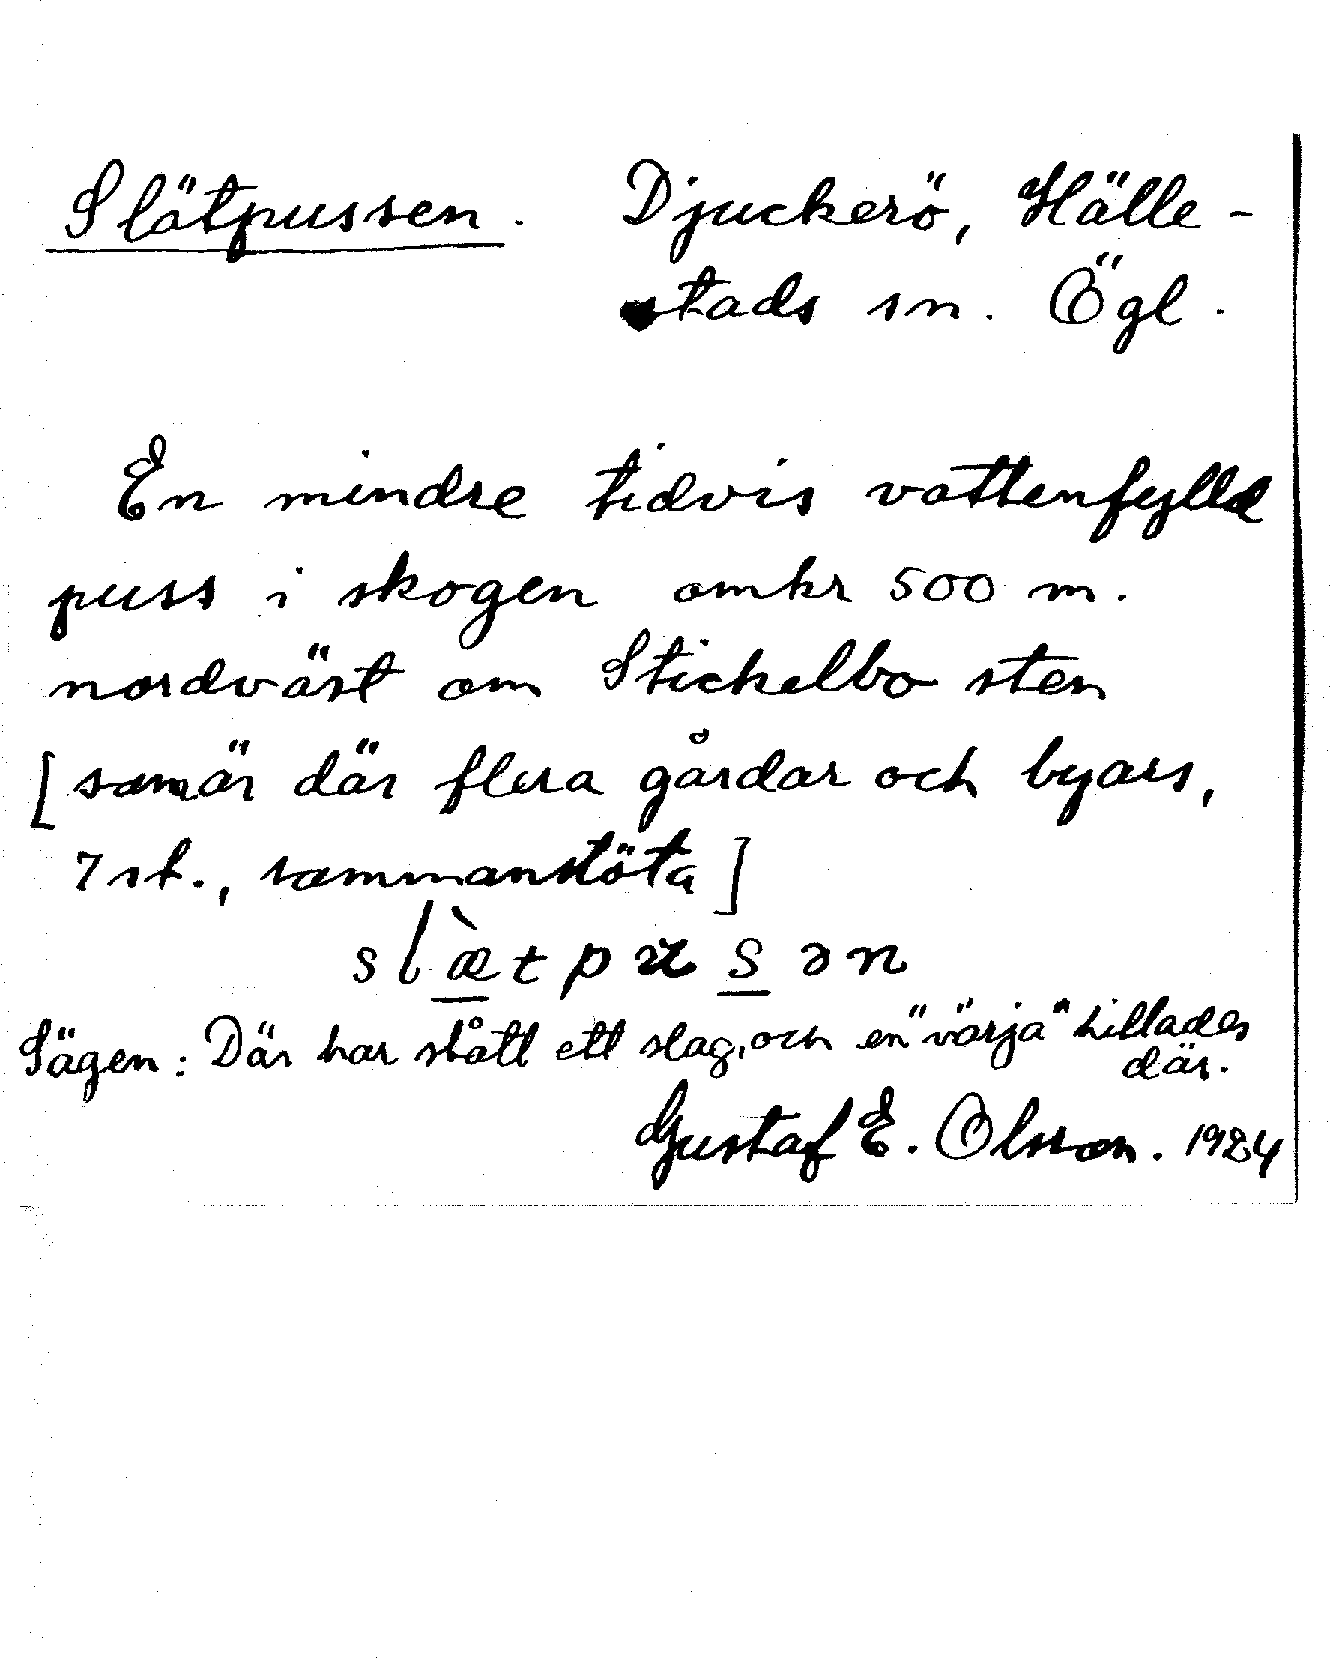 Slätpussen. Djuckerö, Hälle-
stads sn. Ögl.
En mindre tidvis vattenfylld
puss i skogen omkr 500 m.
nordväst om Stickelbo sten
[som är där flera gårdar och byars,
7 st., sammanstöta]
slæ̀tpusən
Sägen: Där har stått ett slag, och en "värja" hittades
där.
Gustaf E. Olsson. 1924